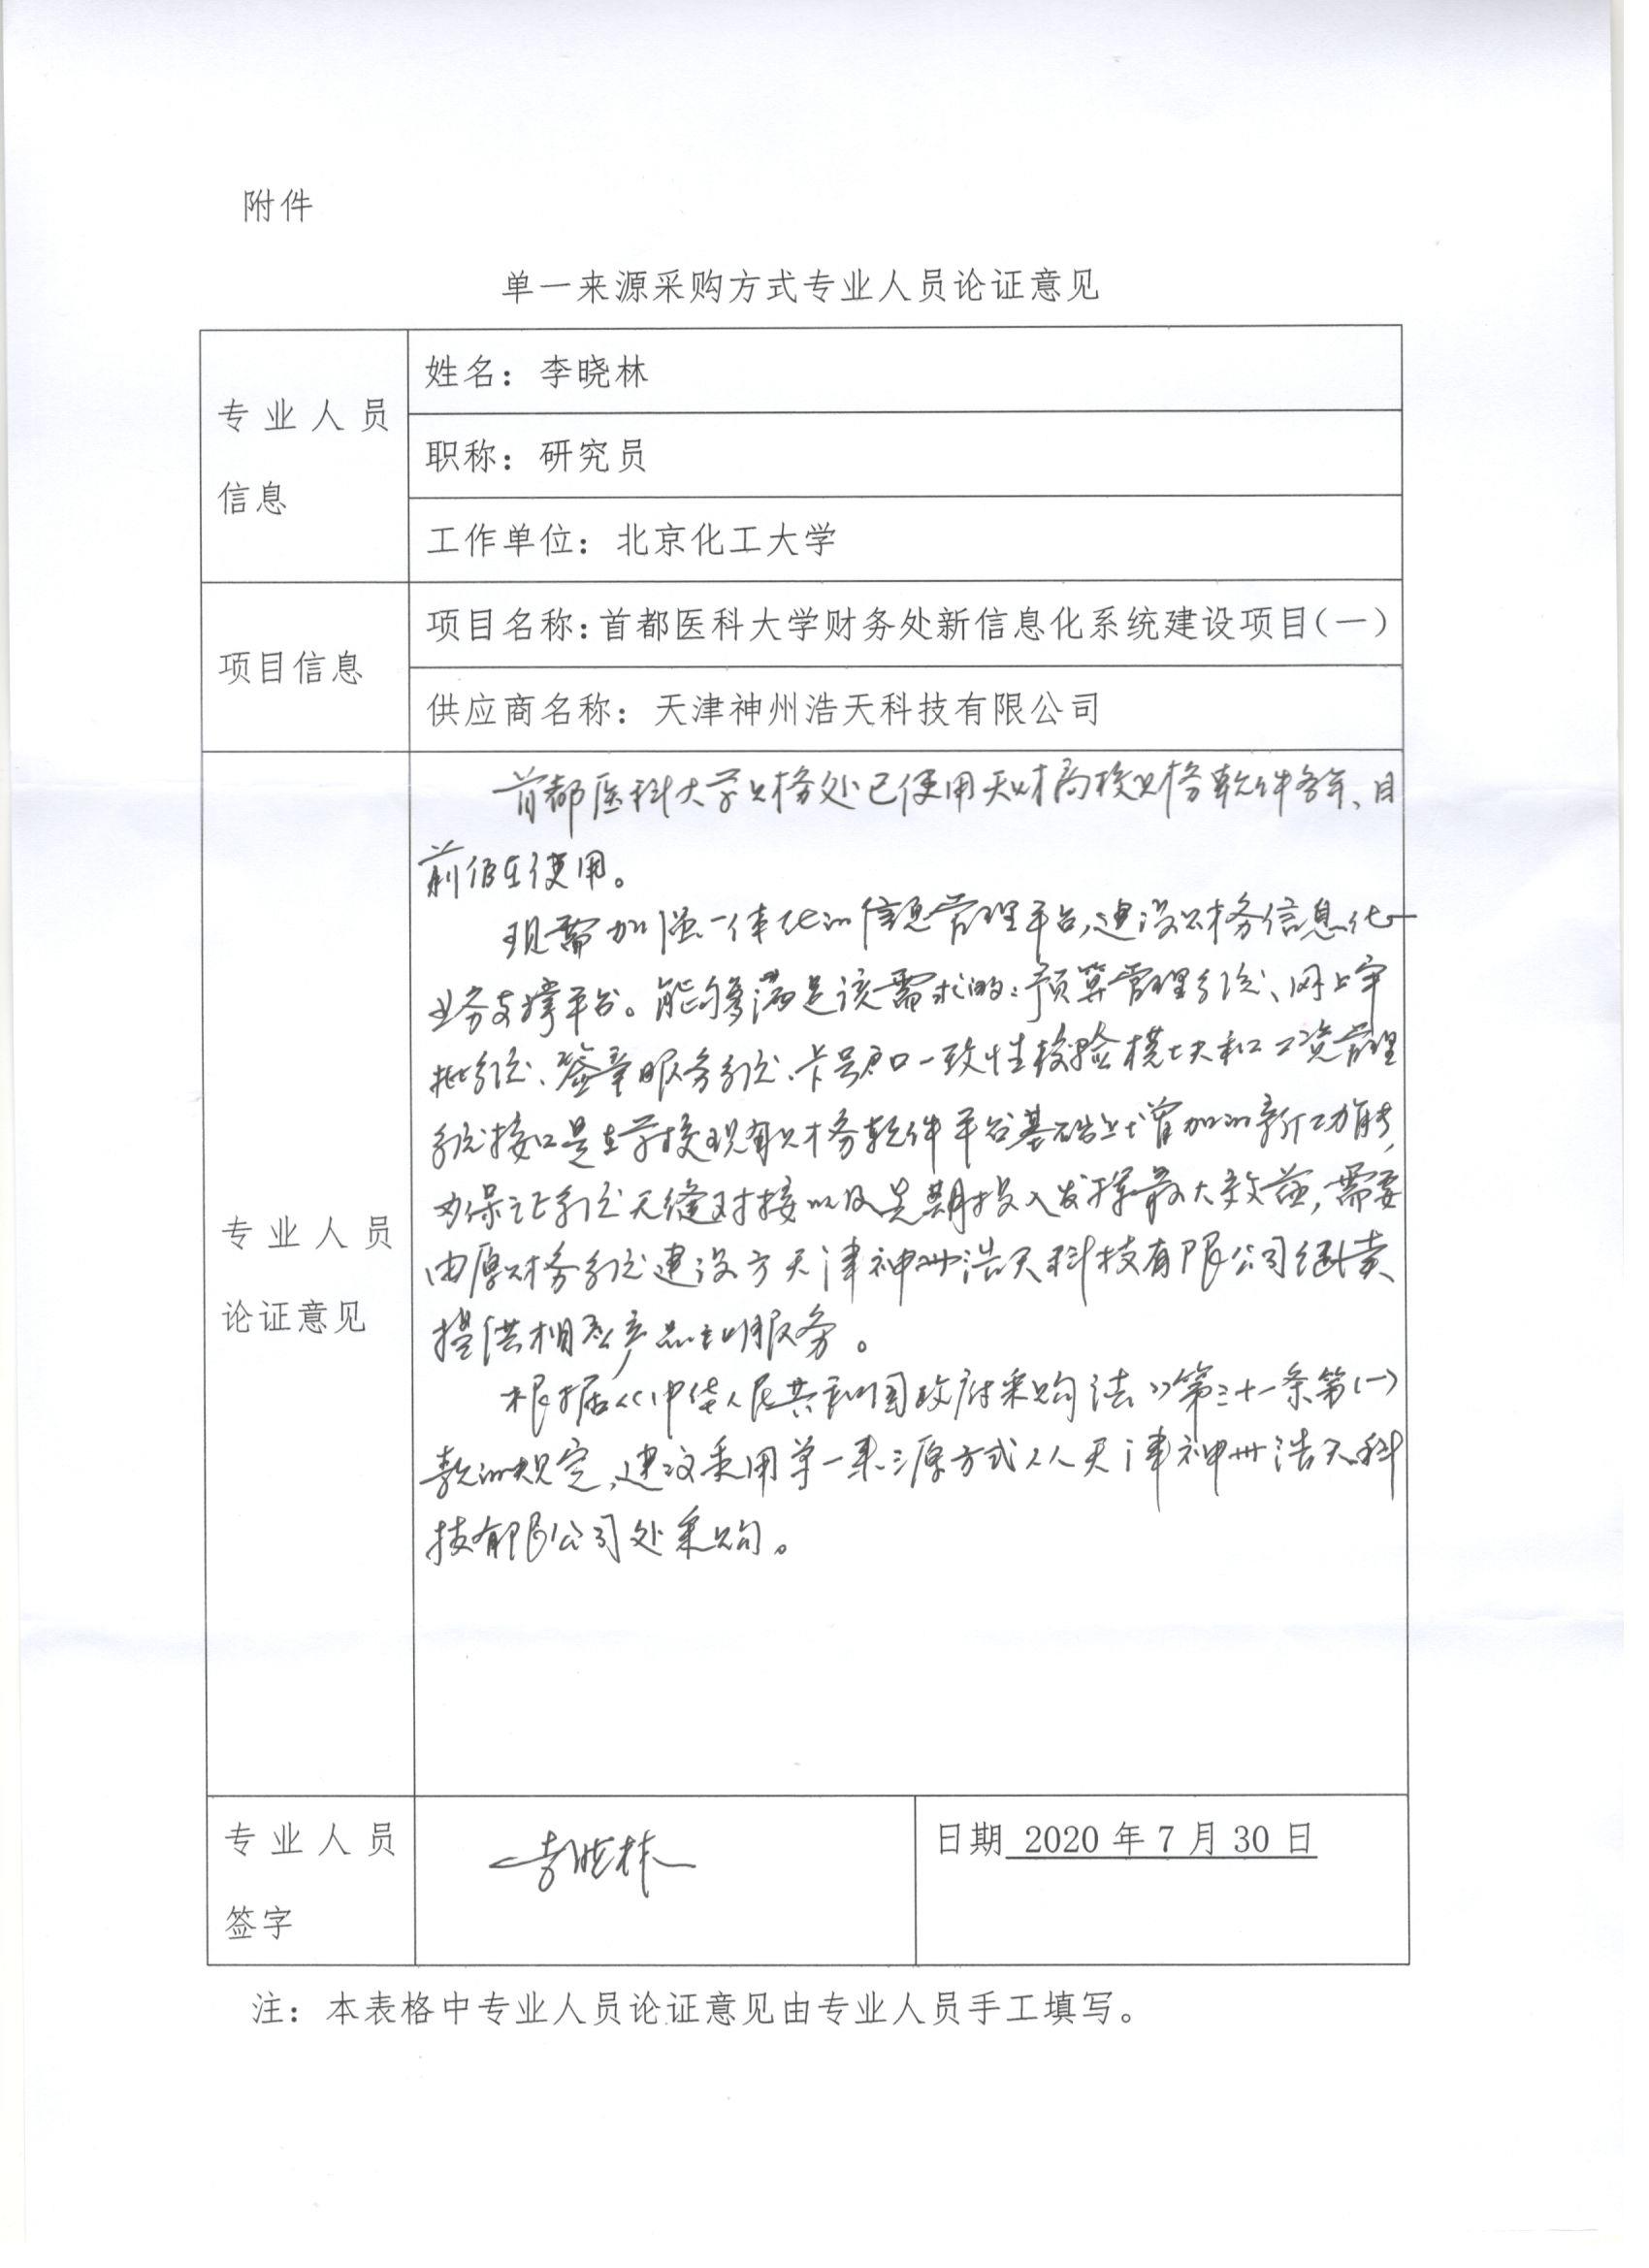 附件
单一来源采购方式专业人员论证意见
专业人员
信息
姓名：李晓林
职称：研究员
工作单位：北京化工大学
项目信息
项目名称：首都医科大学财务处新信息化系统建设项目（一）
供应商名称：天津神州浩天科技有限公司
专业人员
论证意见
首都医科大学财务处已使用天财高校财务软件多年、目
前仍在使用。
现需加强一体化的信息管理平台，建设财务信息化
业务支撑平台。能够满足该需求的：预算管理系统、网上审
批系统、签章服务系统、卡号户口一致性校验模块和工资管理
系统接口是在学校现有财务软件平台基础上增加的新功能，
为保证系统无缝对接以及先期投入发挥最大效益，需要
由原财务系统建设方天津神州浩天科技有限公司继续
提供相应产品和服务。
根据《中华人民共和国政府采购法》第三十一条第（一）
款的规定，建议采用单一来源方式从天津神州浩天科
技有限公司处采购。
专业人员
签字
李晓林
日期 2020 年 7 月 30 日
注：本表格中专业人员论证意见由专业人员手工填写。